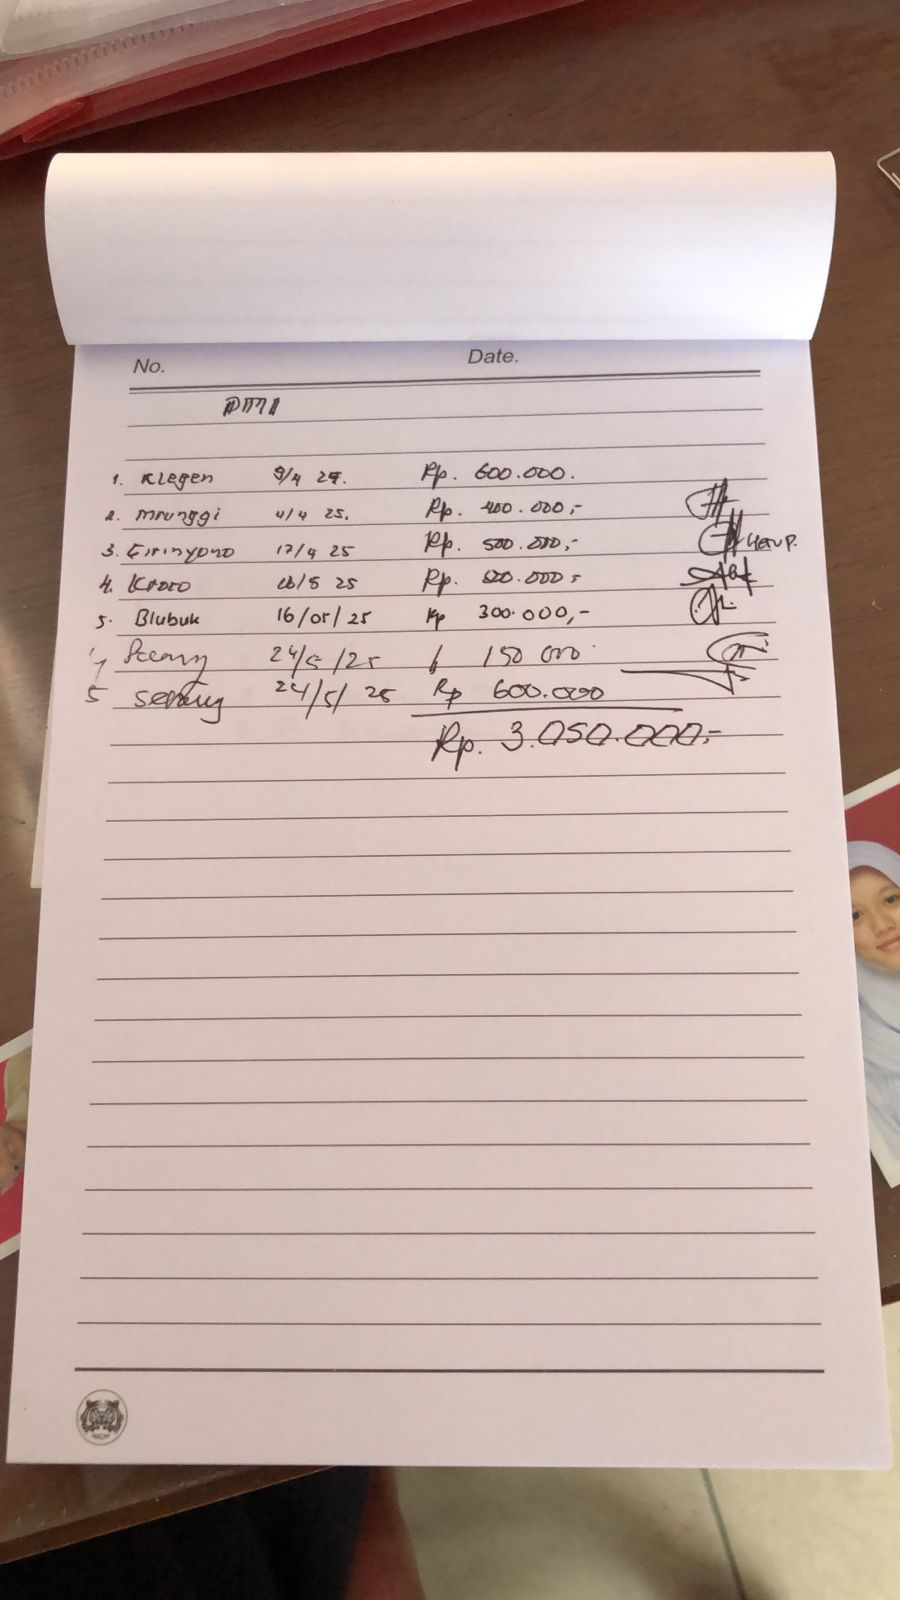 No. Date.
PMI
1. Klegen 9/4 25. Rp. 600.000.
2. Mrunggi 4/4 25. Rp. 400.000,-
3. Giripyono 17/4 25 Rp. 500.000,-
4. Kroco 26/5 25 Rp. 500.000,-
5. Blubuk 16/05/25 Rp 300.000,-
24/5/25 150 000
5 24/5/25 Rp 600.000
Rp. 3.050.000,-